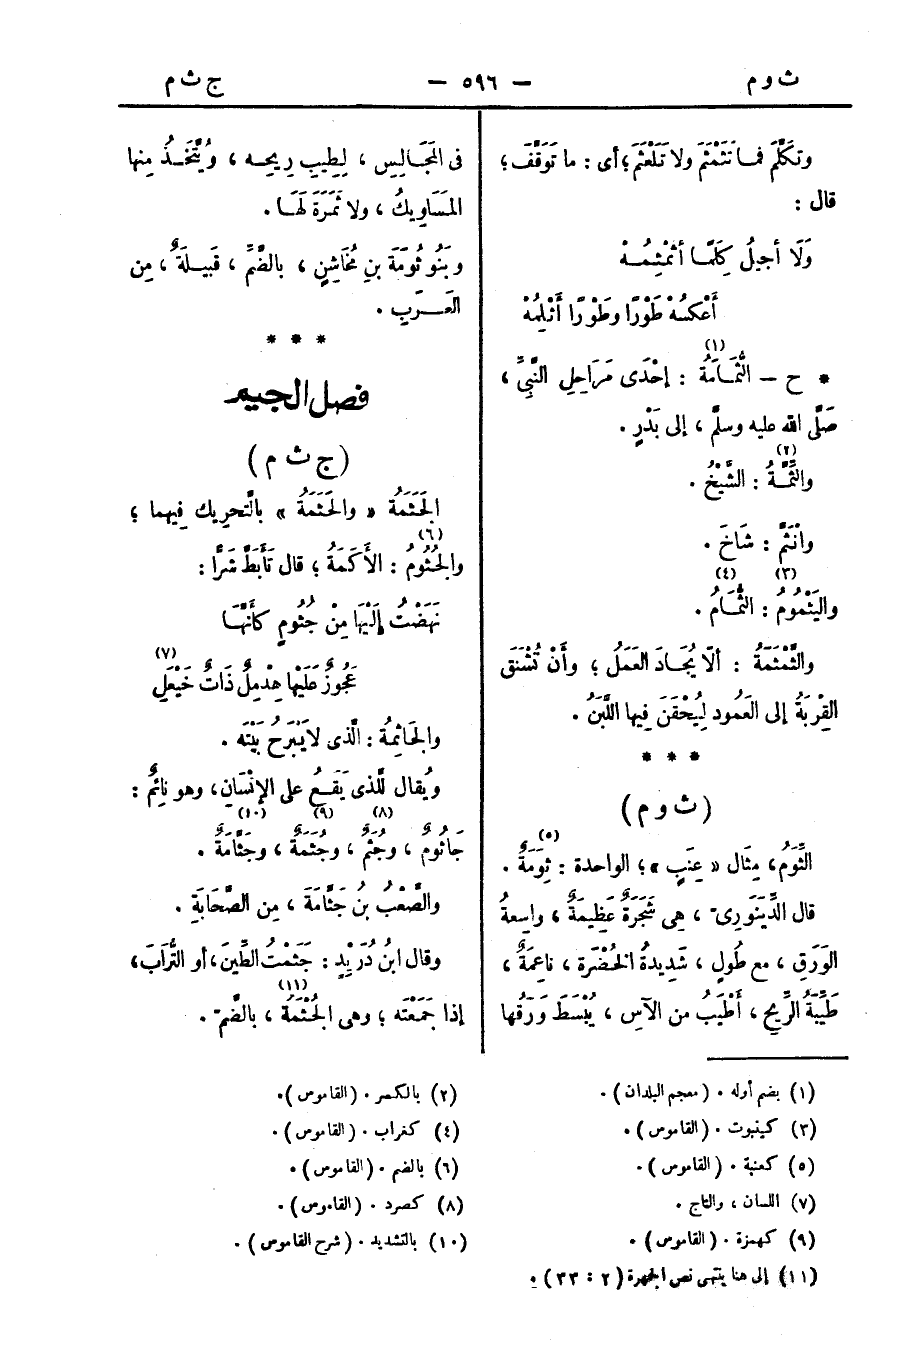 ث و م
— ٥٩٦ —
ج ث م
وتَكَلَّمَ فما تَثَمْثَمَ ولا تَلَعْثَمَ؛ أى : ما تَوَقَّفَ ؛
قال :
وَلَا أجِيلُ كَلِمًا أثَمْثِمُهْ
أَعْكِسُهْ طَوْرًا وطَوْرًا أثْلِمُهْ
* ح — الثُّمَامَةُ (١) : إحْدَى مَرَاحِلِ النَّبِيِّ ،
صَلَّى الله عليه وسلَّم ، إلى بَدْرٍ .
والثِّمَّةُ (٢) : الشَّيْخُ .
وانْثَمَّ : شَاخَ .
واليَثْمُومُ (٣) : الثُّمَامُ (٤) .
والثَّمْثَمَةُ : ألّا يُجَادَ العَمَلُ ؛ وأنْ تُشْنَقَ
القِرْبَةُ إلى العَمُود لِيُحْقَنَ فيها اللَّبَنُ .
* * *
( ث و م )
الثِّوَمُ، مِثَال « عِنَبٍ » ؛ الواحدة : ثِوَمَةٌ (٥) .
قال الدِّينَوَرِىّ ، هى شَجَرَةٌ عَظِيمَةٌ ، واسِعةُ
الوَرَقِ ، مع طُولٍ ، شَدِيدَةُ الخُضْرَة ، ناعِمَةٌ ،
طَيِّبَةُ الرِّيحِ ، أَطْيَبُ من الآسِ ، يُبْسَطُ وَرَقُها
فى المَجَالِسِ ، لِطِيبِ رِيحِه ، ويُتَّخَذُ مِنها
المَسَاوِيكُ ، ولا ثَمَرَةَ لَهَا .
وبَنُو ثُومَةَ بنِ مُخَاشِنٍ ، بالضَّمِّ ، قَبِيلَةٌ ، مِن
العَرَبِ .
* * *
فصل الجيم
( ج ث م )
الجَثَمَةُ « والحَثَمَةُ » بالتَّحريك فيهما ؛
والجُثُومُ (٦) : الأَكَمَةُ ؛ قال تَأَبَّطَ شَرًّا :
نَهَضْتُ إلَيْهَا مِنْ جُثُومٍ كأنَّهَا
عَجُوزٌ عَلَيْها هِدْمِلٌ ذَاتُ خَيْعَلِ (٧)
والجَاثِمَةُ : الَّذى لا يَبْرَحُ بَيْتَه .
ويُقال للَّذى يَقَعُ على الإنْسَانِ، وهو نائِمٌ :
جَاثُومٌ ، وجُثَمٌ (٨) ، وجُثَمَةٌ (٩) ، وجَثَّامَةٌ (١٠) .
والصَّعْبُ بنُ جَثَّامَةَ ، مِن الصَّحَابَةِ .
وقال ابنُ دُرَيدٍ : جَثَمْتُ الطِّينَ ، أو التُّرابَ ،
إذا جَمَعْتَه ؛ وهى الجُثْمَةُ (١١) ، بالضَّمّ .
(١) بضم أوله . ( معجم البلدان ) .
(٢) بالكسر . ( القاموس ) .
(٣) كينبوت . ( القاموس ) .
(٤) كغراب . ( القاموس ) .
(٥) كعنبة . ( القاموس ) .
(٦) بالضم . ( القاموس ) .
(٧) اللسان ، والتاج .
(٨) كصرد . ( القاموس ) .
(٩) كهمزة . ( القاموس ) .
(١٠) بالتشديد . ( شرح القاموس ) .
(١١) إلى هنا ينتهى نص الجمهرة ( ٢ : ٣٣ ) .